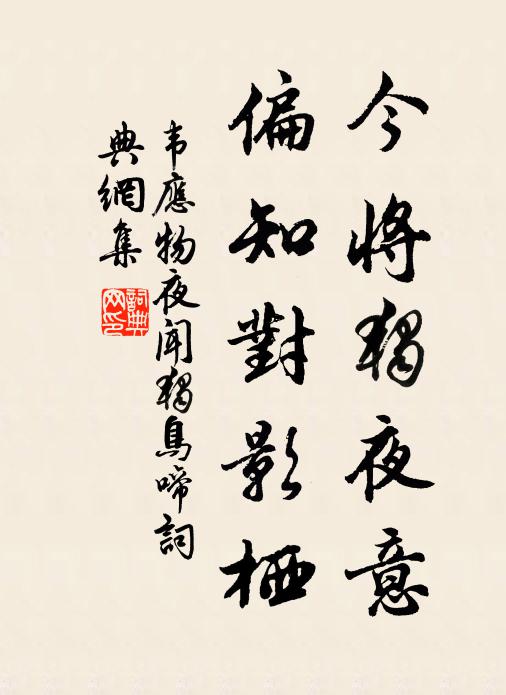 今將獨夜意
偏知對影栖
韦應物夜聞獨鳥啼詞
典網集
詞典网印